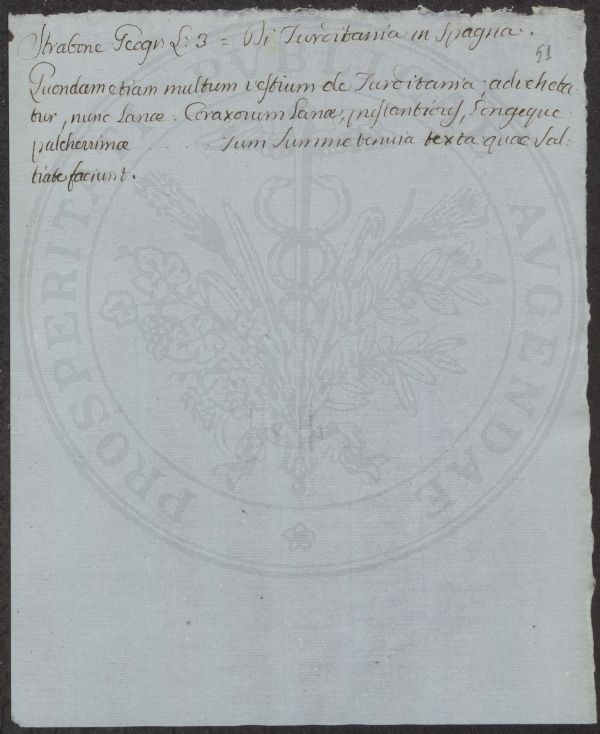 Strabone Geogr. L: 3 = Di Turditania in Spagna.
51
Quondam etiam multum vestium de Turditania adveheba-
tur, nunc Lanæ. Coraxorum Lanæ, præstantiores, Longeque
pulcherrimæ . . . . . Tum summe tenuia texta quæ Sal-
tiatæ faciunt.
PROSPERITATI PUBLICAE AVGENDAE